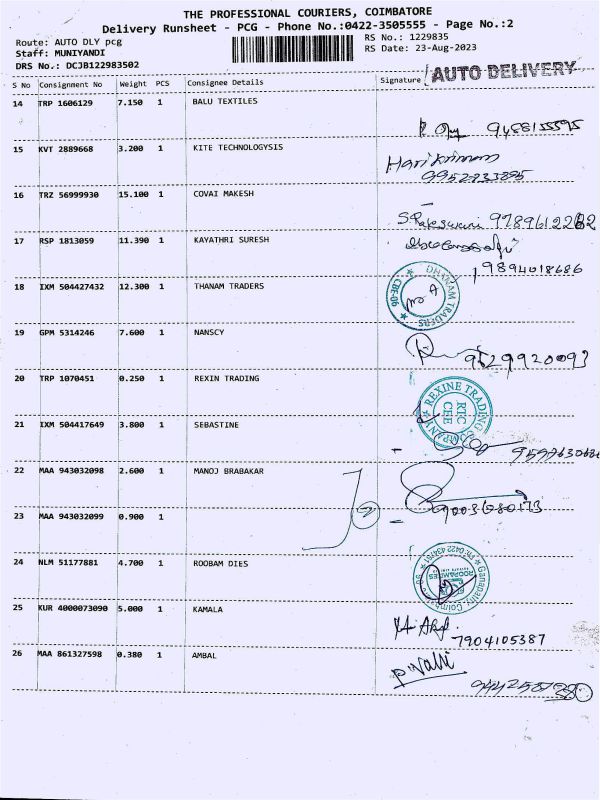 THE PROFESSIONAL COURIERS, COIMBATORE
Delivery Runsheet - PCG - Phone No.:0422-3505555 - Page No.:2
Route: AUTO DLY pcg
Staff: MUNIYANDI
DRS No.: DCJB122983502
RS No.: 1229835
RS Date: 23-Aug-2023
AUTO DELIVERY
S No Consignment No Weight PCS Consignee Details Signature
14 TRP 1606129 7.150 1 BALU TEXTILES
15 KVT 2889668 3.200 1 KITE TECHNOLOGYSIS
Harikrishnan
16 TRZ 56999930 15.100 1 COVAI MAKESH
S.Rajeswari
17 RSP 1813059 11.390 1 KAYATHRI SURESH
9894018686
18 IXM 504427432 12.300 1 THANAM TRADERS
DHANAM TRADERS CBE-06
19 GPM 5314246 7.600 1 NANSCY
9629920093
20 TRP 1070451 0.250 1 REXIN TRADING
REXINE TRADING COMPANY
RTC
CEE
21 IXM 504417649 3.800 1 SEBASTINE
22 MAA 943032098 2.600 1 MANOJ BRABAKAR
9003680173
23 MAA 943032099 0.900 1
24 NLM 51177881 4.700 1 ROOBAM DIES
25 KUR 4000073090 5.000 1 KAMALA
7904105387
26 MAA 861327598 0.380 1 AMBAL
P.Valli